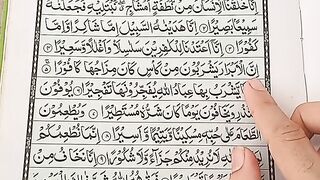 اِنَّا خَلَقْنَا الْاِنْسَانَ مِنْ نُّطْفَةٍ اَمْشَاجٍ نَّبْتَلِيْهِ فَجَعَلْنٰهُ
سَمِيْعًا بَصِيْرًا اِنَّا هَدَيْنٰهُ السَّبِيْلَ اِمَّا شَاكِرًا وَّاِمَّا
كَفُوْرًا اِنَّا اَعْتَدْنَا لِلْكٰفِرِيْنَ سَلٰسِلَا۟ وَاَغْلٰلًا وَّسَعِيْرًا
اِنَّ الْاَبْرَارَ يَشْرَبُوْنَ مِنْ كَاْسٍ كَانَ مِزَاجُهَا كَافُوْرًا
يَّشْرَبُ بِهَا عِبَادُ اللّٰهِ يُفَجِّرُوْنَهَا تَفْجِيْرًا يُوْفُوْنَ
وَيَخَافُوْنَ يَوْمًا كَانَ شَرُّهٗ مُسْتَطِيْرًا وَيُطْعِمُوْنَ
الطَّعَامَ عَلٰى حُبِّهٖ مِسْكِيْنًا وَّيَتِيْمًا وَّاَسِيْرًا اِنَّمَا نُطْعِمُكُمْ
اللّٰهِ لَا نُرِيْدُ مِنْكُمْ جَزَآءً وَّلَا شُكُوْرًا اِنَّا نَخَافُ مِنْ